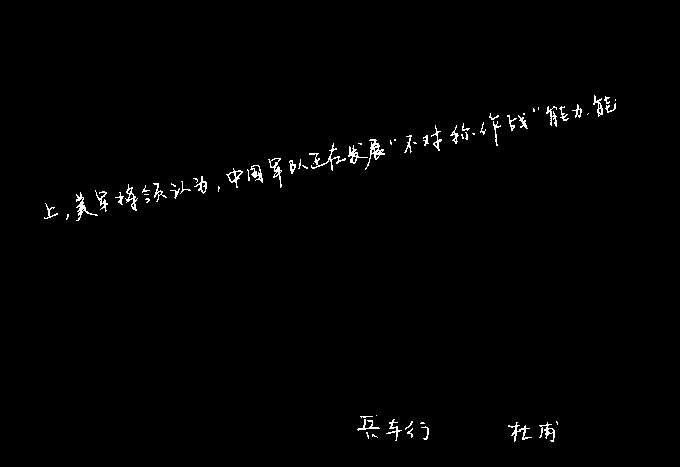 上,美军将领认为,中国军队正在发展“不对称作战”能力.能
兵车行 杜甫